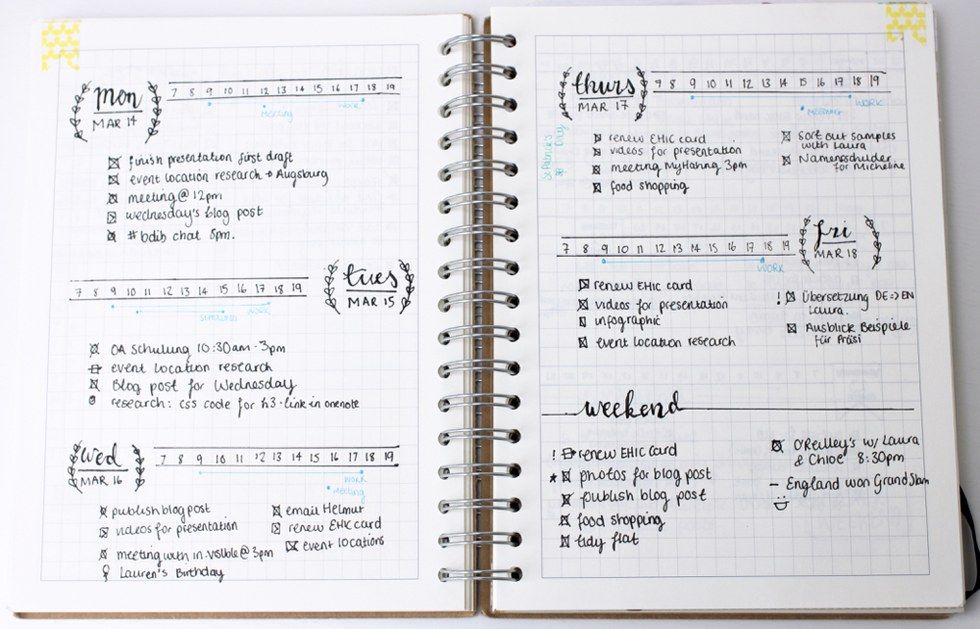 mon
MAR 14
7 8 9 10 11 12 13 14 15 16 17 18 19
Meeting
WORK
finish presentation first draft
event location research → Augsburg
meeting @ 12pm
wednesday's blog post
#bdib chat 8pm.
7 8 9 10 11 12 13 14 15 16 17 18 19
SCHULUNG
WORK
tues
MAR 15
OA Schulung 10:30am-3pm
event location research
Blog post for Wednesday
research: css code for h3 - link in onenote
wed
MAR 16
7 8 9 10 11 12 13 14 15 16 17 18 19
WORK
Meeting
publish blog post
videos for presentation
meeting with in.visible @ 3pm
Lauren's Birthday
email Helmut
renew EHIC card
event locations
thurs
MAR 17
7 8 9 10 11 12 13 14 15 16 17 18 19
WORK
MEETING
St Patrick's Day
renew EHIC card
videos for presentation
meeting MyHahng 3pm
food shopping
Sort out samples
with Laura
Namensschilder
for Micheline
7 8 9 10 11 12 13 14 15 16 17 18 19
WORK
fri
MAR 18
renew EHIC card
videos for presentation
infographic
event location research
! Übersetzung DE=>EN
Laura.
Ausblick Beispiele
für Präsi
weekend
! renew EHIC card
* photos for blog post
publish blog post
food shopping
tidy flat
O'Reilley's w/ Laura
& Chloe 8:30pm
- England won Grand Slam